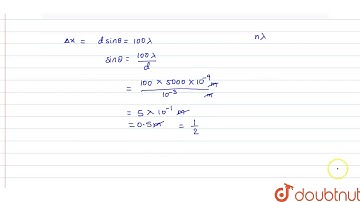 Δx = d sinθ = 100λ nλ
sinθ = 100λ / d
= 100 × 5000 × 10⁻⁹ m / 10⁻³ m
= 5 × 10⁻¹ m
= 0.5m = 1/2
doubtnut